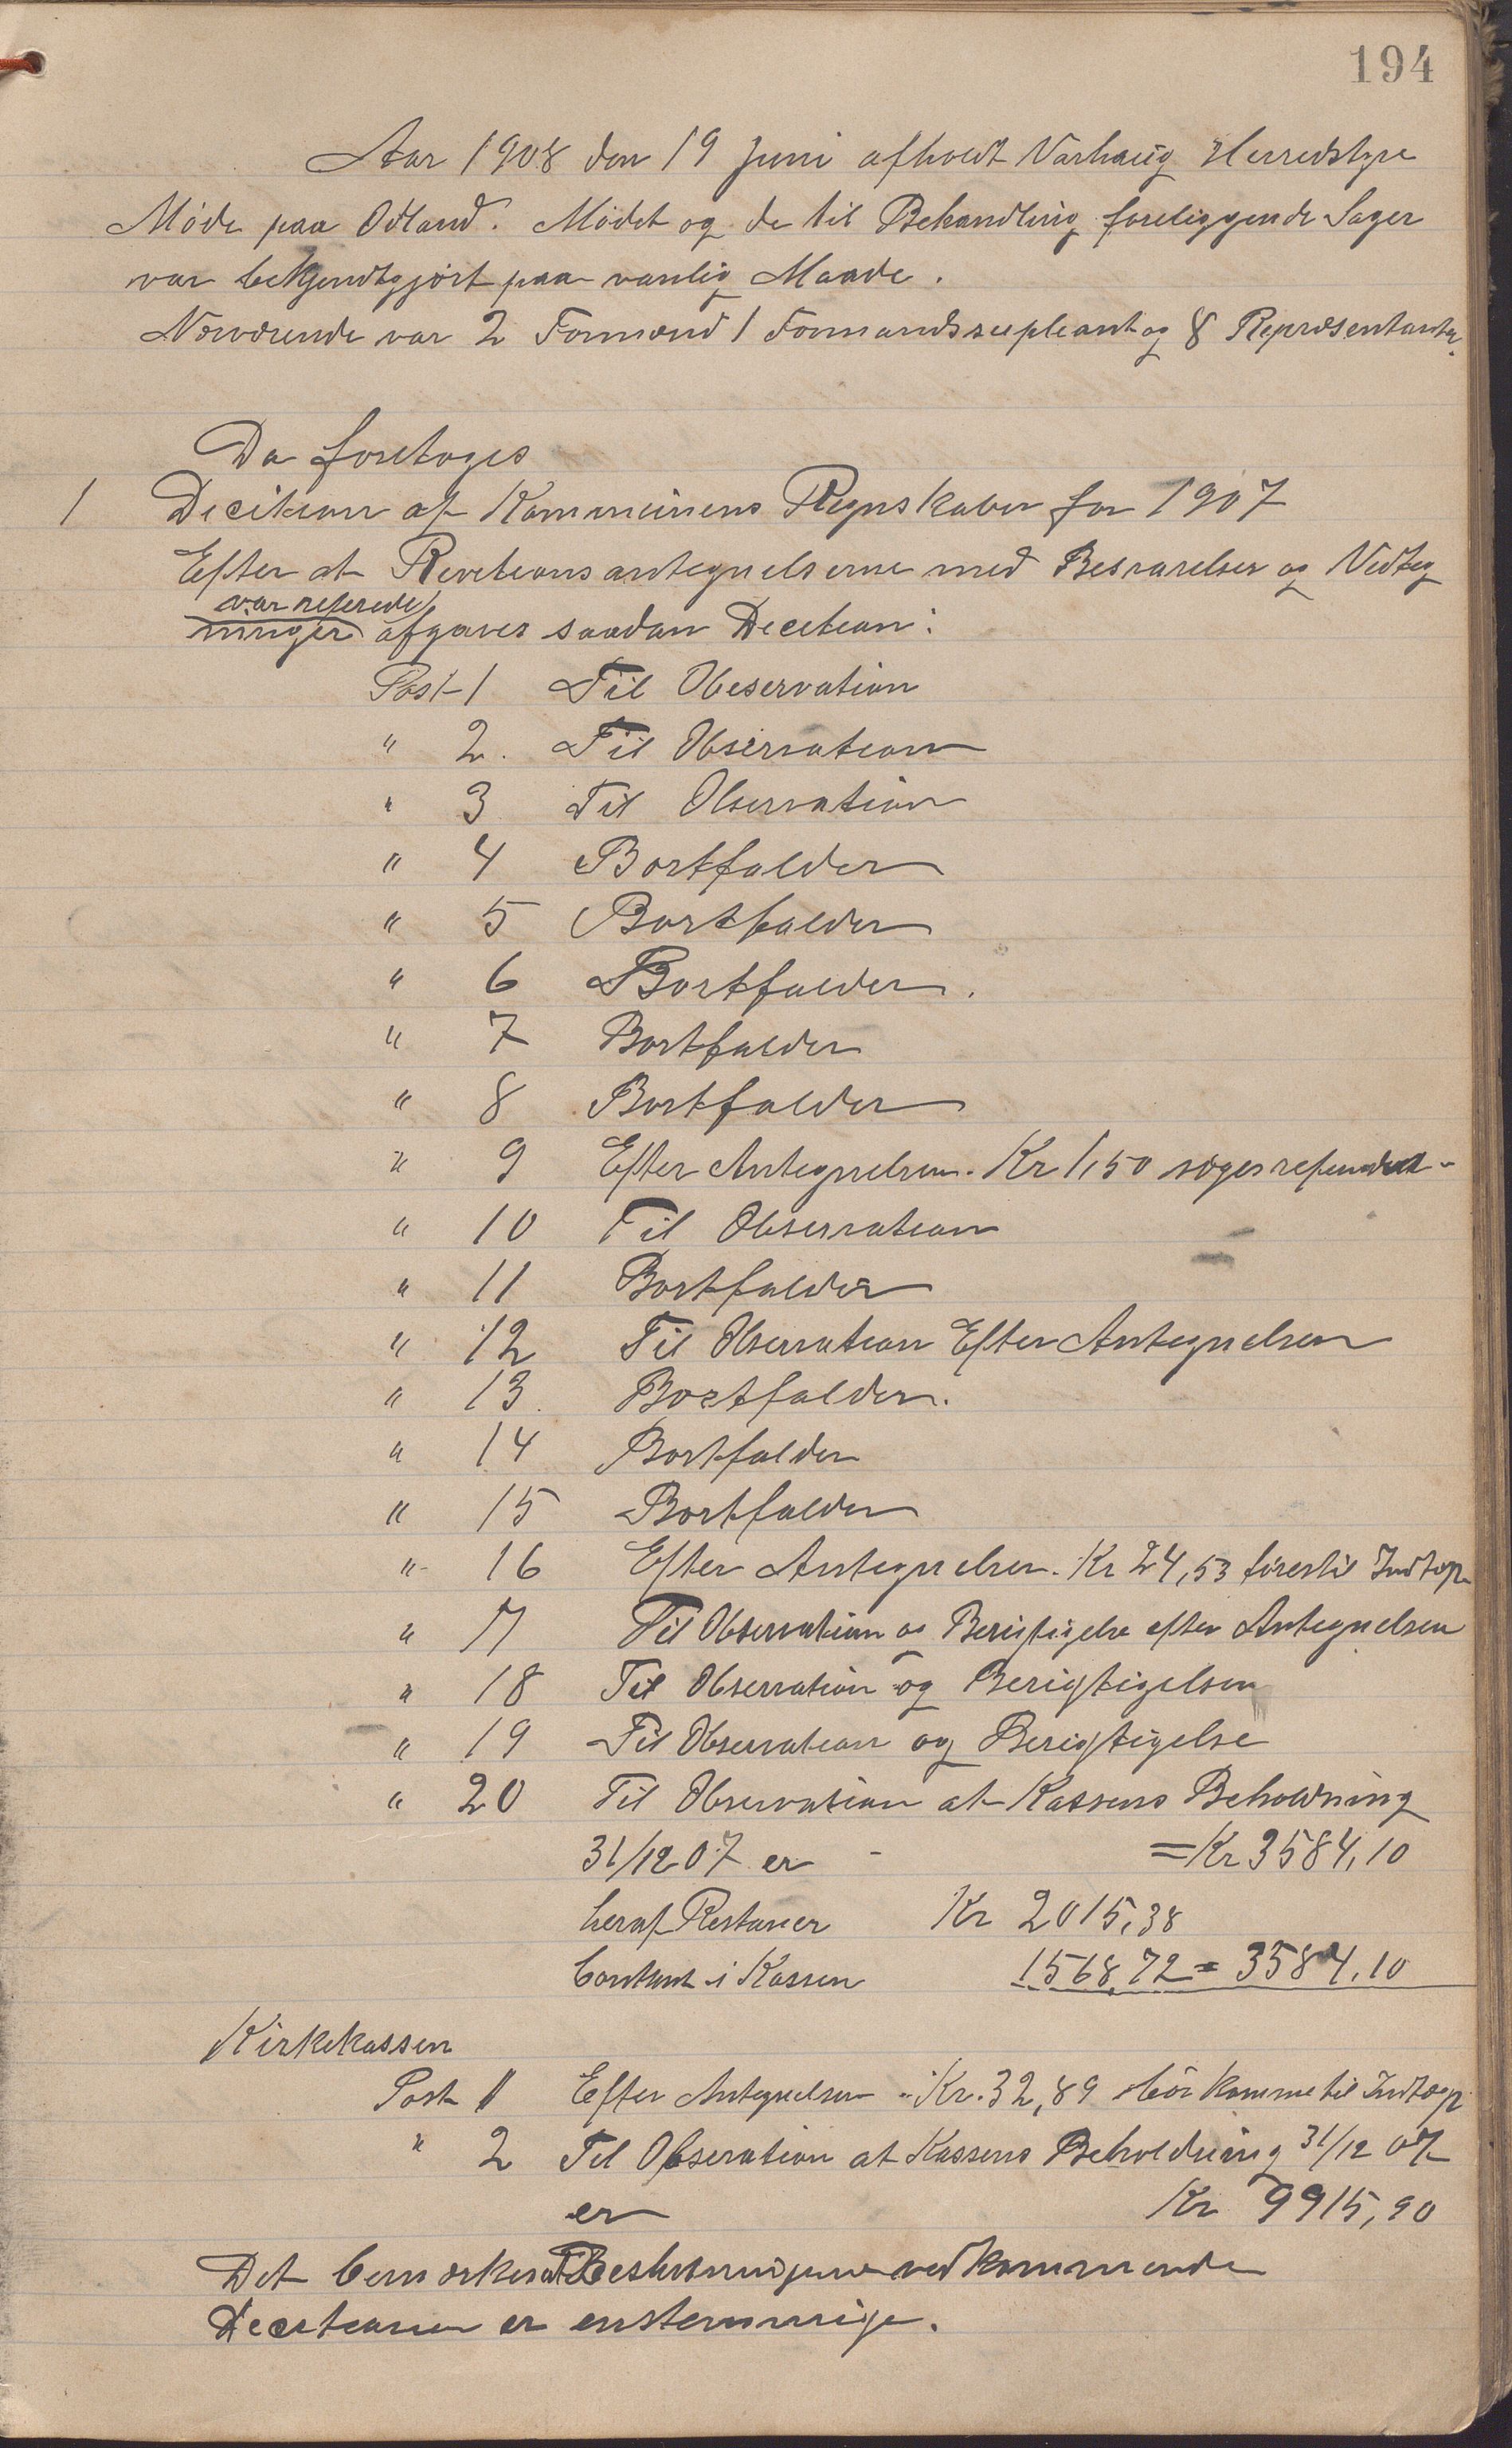 194
Aar 1908 den 19 Juni afholdt Varhaug Herredstyre
Møde paa Odland. Mødet og de til Behandling foreliggende Sager
var bekjendtgjort paa vanlig Maade.
Nærværende var 2 Formænd 1 Formandssupleant og 8 Repræsentanter.
Da foretoges
1 Decitionen af Kommunens Regnskaber for 1907
Efter at Revetionsantegnelserne med Besvarelser og Vedteg
var referede
ninger afgaves saadan Decetion:
Post 1 Til Observation
" 2. Til Observation
" 3 Til Observation
" 4 Bortfalder
" 5 Bortfalder
" 6 Bortfalder.
" 7 Bortfalder
" 8 Bortfalder
" 9 Efter Antegnelsen. Kr 1,50 søges refunderet
" 10 Til Observation
" 11 Bortfalder
" 12 Til Observation Efter Antegnelsen
" 13. Bortfalder.
" 14 Bortfalder
" 15 Bortfalder
" 16 Efter Antegnelsen. Kr 24,53 føres til Indtægt
" 17 Til Observation og Berigtigelse efter Antegnelsen
" 18 Til Observation og Berigtigelsen
" 19 Til Observation og Berigtigelse
" 20 Til Observation at Kassens Beholdning
31/12 07 er - = Kr 3584,10
heraf Restancer Kr 2015,38
Contant i Kassen 1568,72 = 3584,10
Kirkekassen
Post 1 Efter Antegnelsen " Kr. 32,89 bør komme til Indtægt
" 2 Til Obseration at Kassens Beholdning 31/12 07
er Kr 9915,90
Det bemærkes at Beslutningerne vedkommende
Decetionen er enstemmige.